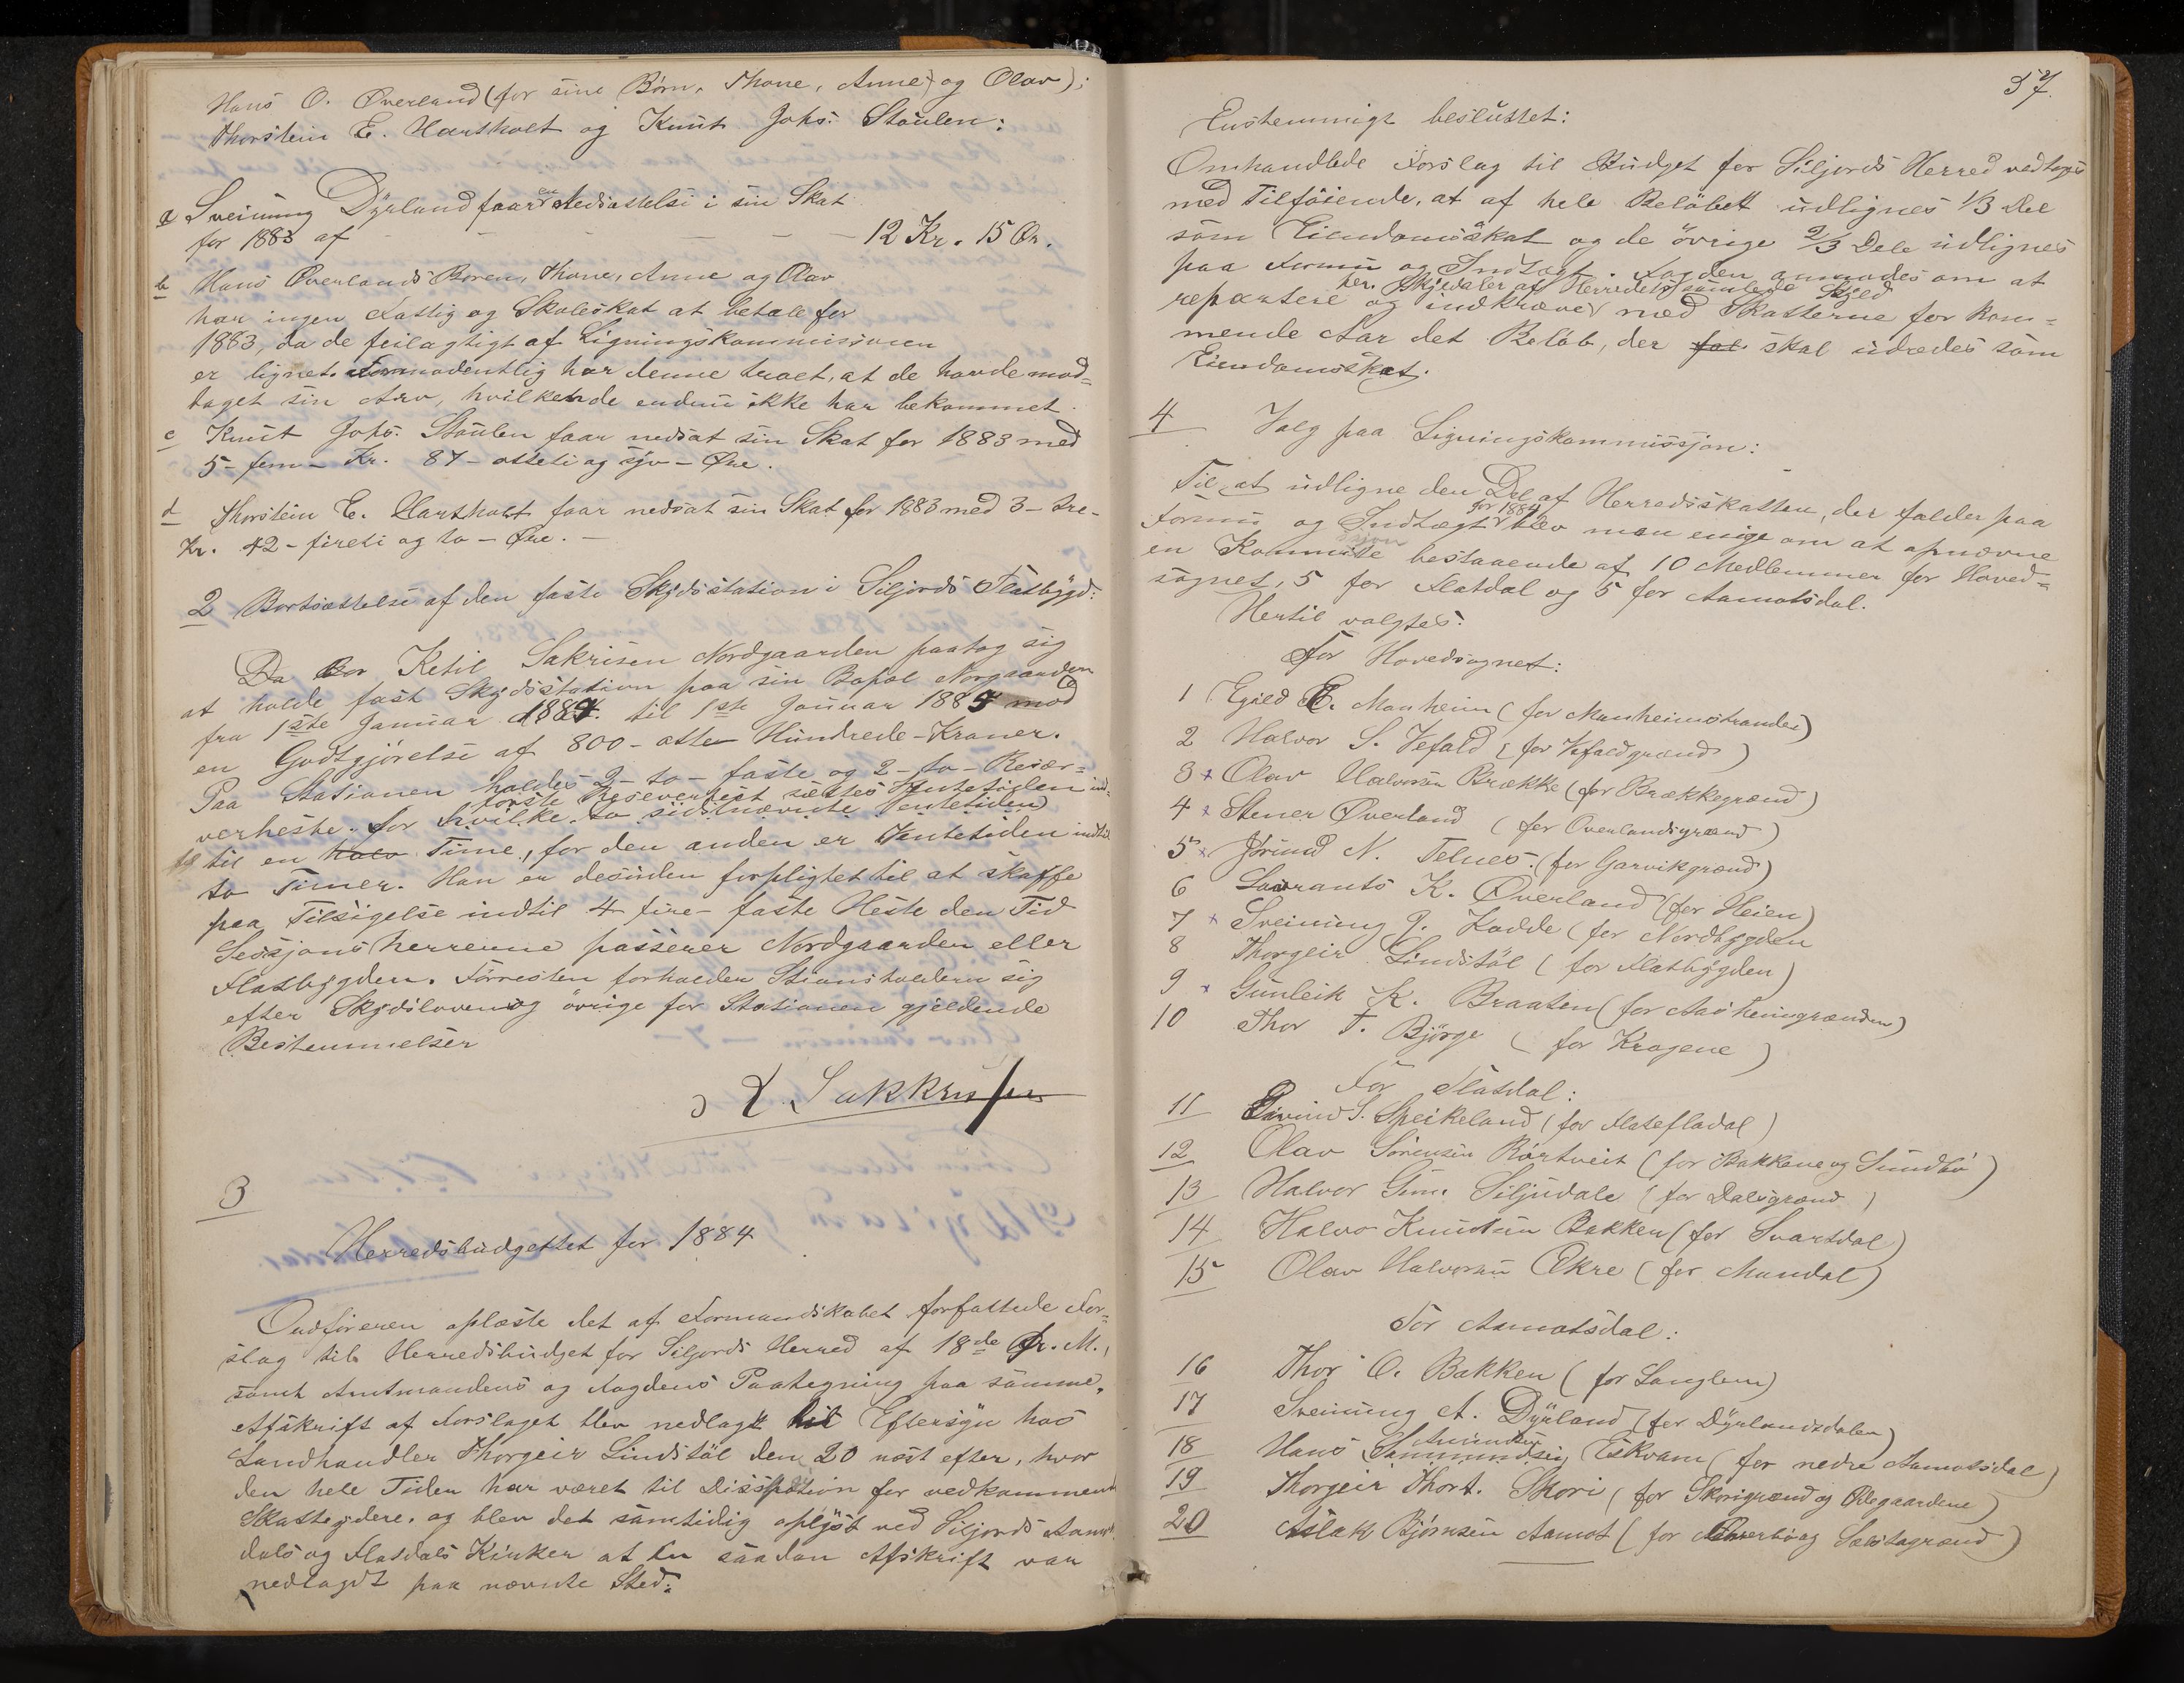 Hans O. Øverland (for sine Børn, Thone, Anne og Olav);
Thorstein E. Hartholt og Knut Johs. Staulen:
a Sveinung Dyrland faar en Nedsættelse i sin Skat
for 1883 af - - - - - 12 Kr. 15 Ør.
b Hans Øverlands Børen, Thone, Anne og Olav
har ingen Fattig og Skoleskat at betale for
1883, da de feilagtigt af Ligningskommissionen
er lignet. Formodentlig har denne troet, at de havde mod=
taget sin Arv, hvilken de endnu ikke har bekommet.
c Knut Johs. Staulen faar nedsat sin Skat for 1883 med
5 - fem - Kr. 87 - otteti og syv - Øre.
d Thorstein E. Hartholt faar nedsat sin Skat for 1883 med 3 - tre -
Kr. 42 - fireti og to - Øre. -
2 Bortsættelse af den faste Skydsstation i Siljords Flatbygd:
Da Ketil Sakrisen Nordgaarden paatog sig
at holde fast Skydsstation paa sin Bopæl Norgaarden
fra 1ste Januar 1884 til 1ste Januar 1885 mod
en Godtgjörelse af 800 - otte Hundrede - Kroner.
Paa Stasionen holdes 2 - to - faste og 2 - to - Reser=
første Reservehest sættes Ventetiden ind=
verheste. for hvilke to sidstnævnte Ventetiden
til til en halv Time, for den anden er Ventetiden indtil
to Timer. Han er desuden forpligtet til at skaffe
paa Tilsigelse indtil 4 fire - faste Heste den Tid
Sessjonsherrerne passerer Nordgaarden eller
Flatbygden. Förresten forholder Stasionsholderen sig
efter Skydsloven og övrige for Stasionen gjeldende
Bestemmelser
K Sakkrisen
3
Herredsbudgettet for 1884
Ordføreren oplæste det af Formandskabet forfattede For=
slag til Herredsbudget for Siljords Herred af 18de Fr. M.,
samt Amtmandens og Fogdens Paategning paa samme.
Afskrift af Forslaget blev nedlagt til Eftersyn hos
Landhandler Thorgeir Lindstöl den 20 næst efter, hvor
den hele Tiden har været til Disposition for vedkommende
Skatteydere, og blev det samtidig oplyst ved Siljords Aamots=
dals og Flatdals Kirker at en saadan Afskrift var
nedlagdt paa nævnte Sted.
57.
Enstemmigt besluttet:
Omhandlede Forslag til Budget for Siljords Herred vedtages
med Tilföiende, at af hele Belöbet udlignes 1/3 Del
som Eiendomsskat og de övrige 2/3 Dele udlignes
paa Formue og Indtægt. Fogden anmodes om at
per. Skjeldaler af Herredets samlede Skjeld
repartere og indkræve med Skatterne for kom=
mende Aar det Belöb, der fal skal udredes som
Eiendomsskat.
4 Valg paa Ligningskommissjon:
Til at udligne den Del af Herredsskatten, der falder paa
for 1884
Formue og Indtægt blev man enige om at opnævne
ssjon
en Kommite bestaaende af 10 Medlemmer for Hoved=
sognet, 5 for Flatdal og 5 for Aamotsdal.
Hertil valgtes:
For Hovedsognet:
1 Egild E. Manheim (for Manheimstrander)
2 Halvor S. Vefald (for Vefaldgrænd)
3 x Olav Halvorsen Brække (for Brækkegrænd)
4 x Stener Øverland (for Överlandsgrænd)
5 x Jörund N. Telnes. (for Garvikgrænd)
6 Laurants K. Øverland (for Heien)
7 x Sveinung J. Kodde (for Nordbygden
8 Thorgeir Lindstöl (for Flatbygden)
9 x Gunleik K. Braaten (for Aasheimgrænden)
10 Thor T. Björge (for Kragene)
For Flatdal:
11 Eivind S. Speikeland (for Flatefladal)
12 Olav Sörensen Rörtveit (for Bakkene og Sundbö)
13 Halvor Gun. Siljudale (for Dalsgrænd)
14 Halvo Knudsen Bakken (for Svartdal)
15 Olav Halvorsen Ekre (for Mandal)
For Aamotsdal:
16 Thor O. Bakken (for Langlem)
17 Sveinung A. Dyrland (for Dyrlandsdalen)
Amundsen
18 Hans Eskvam (for nedre Aamotsdal)
19 Thorgeir Thort. Skori (for Skorigrænd og Ødegaardene)
20 Aslak Bjørnsen Aamot (for Sælstagrænd)